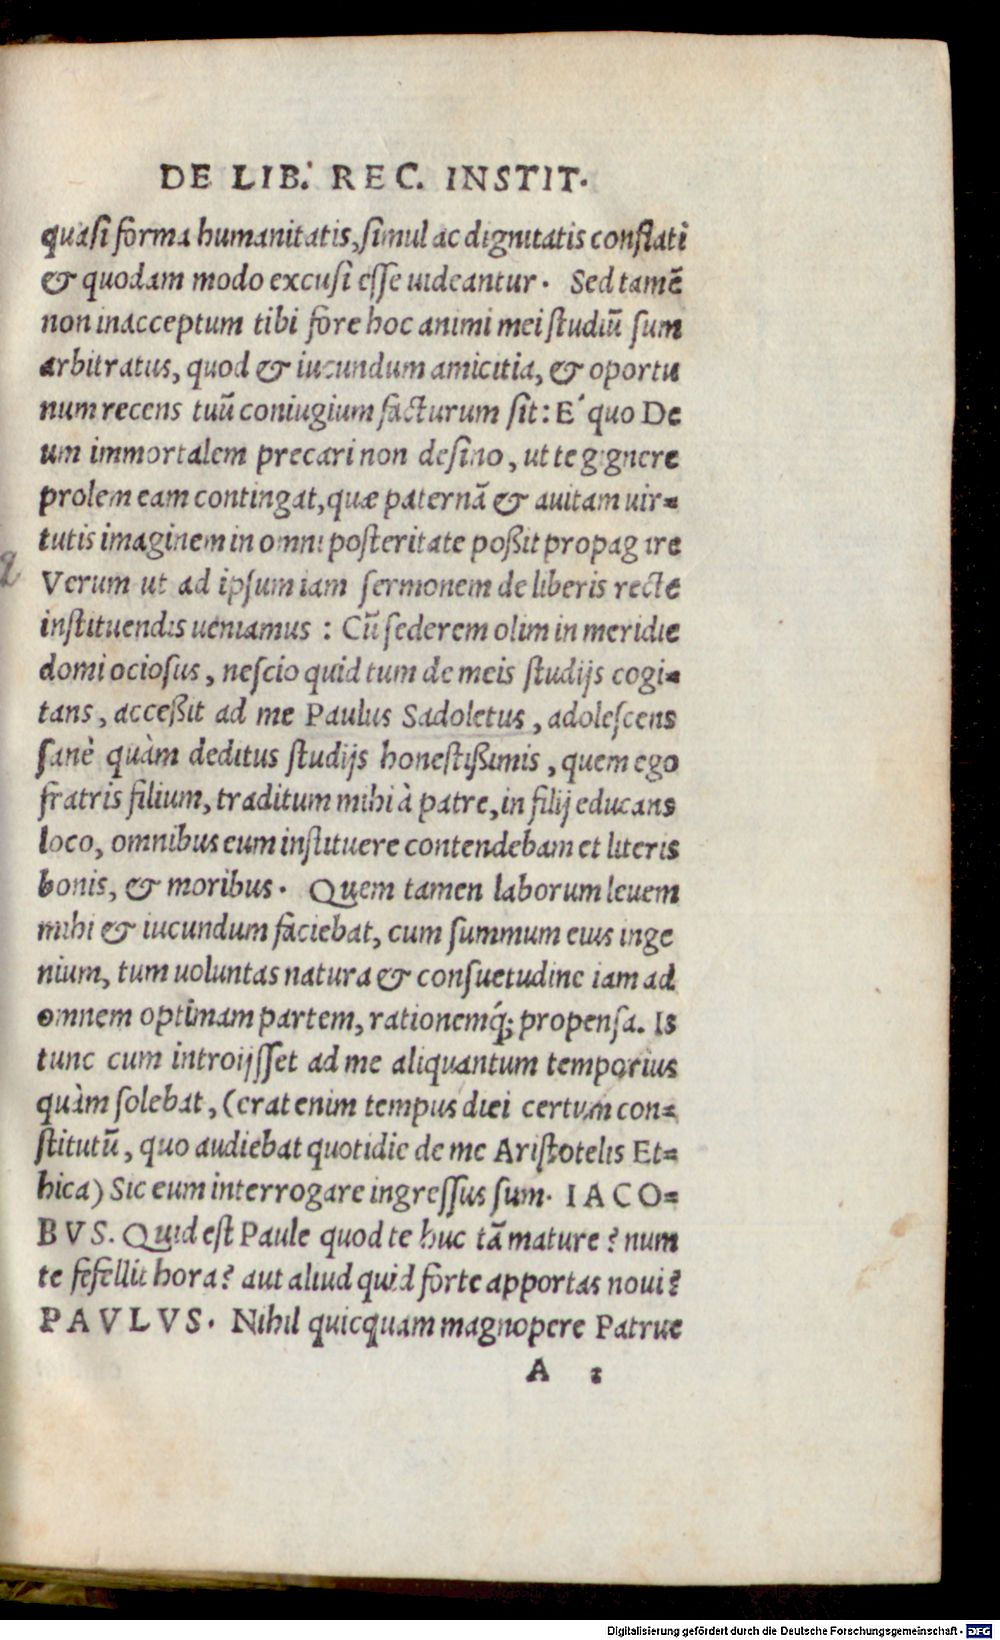 DE LIB. REC. INSTIT.
quasi forma humanitatis, simul ac dignitatis conflati
& quodam modo excusi esse uideantur. Sed tamē
non inacceptum tibi fore hoc animi mei studiū sum
arbitratus, quod & iucundum amicitia, & oportu
num recens tuū coniugium facturum sit: E' quo De
um immortalem precari non desino, ut te gignere
prolem eam contingat, quæ paternā & auitam uir=
tutis imaginem in omni posteritate poßit propagare
Verum ut ad ipsum iam sermonem de liberis recte
instituendis ueniamus : Cū sederem olim in meridie
domi ociosus, nescio quid tum de meis studijs cogi=
tans, acceßit ad me Paulus Sadoletus, adolescens
sanè quàm deditus studijs honestißimis, quem ego
fratris filium, traditum mihi à patre, in filij educans
loco, omnibus eum instituere contendebam et literis
bonis, & moribus. Quem tamen laborum leuem
mihi & iucundum faciebat, cum summum eius inge
nium, tum uoluntas natura & consuetudine iam ad
omnem optimam partem, rationemq́; propensa. Is
tunc cum introijsset ad me aliquantum temporius
quàm solebat, (erat enim tempus diei certum con=
stitutū, quo audiebat quotidie de me Aristotelis Et=
hica) Sic eum interrogare ingressus sum. IACO=
BVS. Quid est Paule quod te huc tā mature? num
te fefellit hora? aut aliud quid forte apportas noui?
PAVLVS. Nihil quicquam magnopere Patrue
A 2
Digitalisierung gefördert durch die Deutsche Forschungsgemeinschaft - DFG